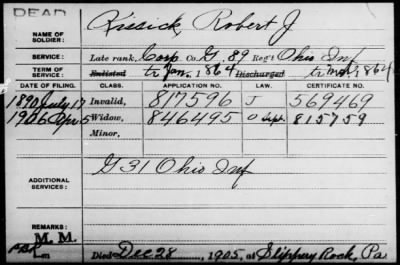 DEAD
NAME OF SOLDIER: Kissick, Robert J
SERVICE: Late rank, Corp Co. G, 89 Reg't Ohio Inf
TERM OF SERVICE: Enlisted tr Jan, 1864 Discharged tr , 1864
DATE OF FILING. CLASS. APPLICATION NO. LAW. CERTIFICATE NO.
1890 July 17 Invalid, 817596 J 569469
1906 Apr 5 Widow, 846495 O Sept. 815759
Minor,
ADDITIONAL SERVICES: G 31 Ohio Inf
REMARKS: M. M.
Died Dec 28, 1905, at Slippery Rock, Pa